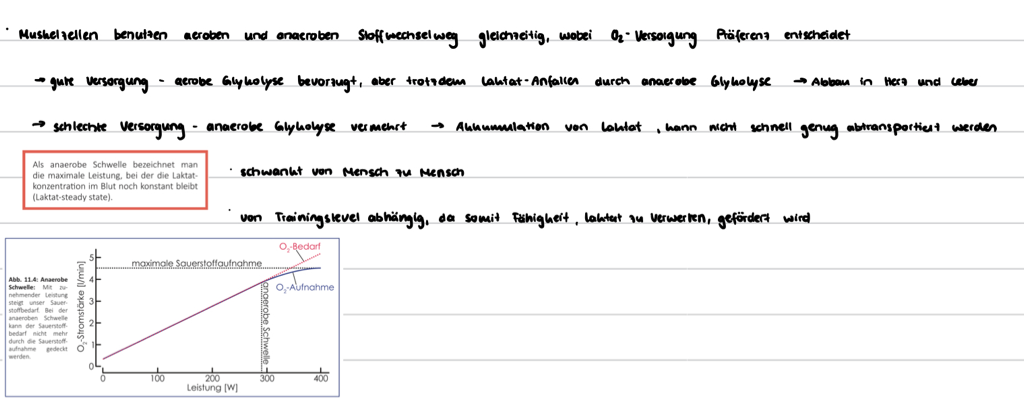 · Muskelzellen benutzen aeroben und anaeroben Stoffwechselweg gleichzeitig, wobei O₂-Versorgung Präferenz entscheidet
→ gute Versorgung - aerobe Glykolyse bevorzugt, aber trotzdem Laktat-Anfallen durch anaerobe Glykolyse → Abbau in Herz und Leber
→ schlechte Versorgung - anaerobe Glykolyse vermehrt → Akkumulation von Laktat, kann nicht schnell genug abtransportiert werden
Als anaerobe Schwelle bezeichnet man
die maximale Leistung, bei der die Laktat-
konzentration im Blut noch konstant bleibt
(Laktat-steady state).
· schwankt von Mensch zu Mensch
· von Trainingslevel abhängig, da somit Fähigkeit, Laktat zu verwerten, gefördert wird
Abb. 11.4: Anaerobe
Schwelle: Mit zu-
nehmender Leistung
steigt unser Sauer-
stoffbedarf. Bei der
anaeroben Schwelle
kann der Sauerstoff-
bedarf nicht mehr
durch die Sauerstoff-
aufnahme gedeckt
werden.
O₂-Stromstärke [l/min]
5
4
3
2
1
0
O₂-Bedarf
maximale Sauerstoffaufnahme
O₂-Aufnahme
anaerobe Schwelle
0 100 200 300 400
Leistung [W]